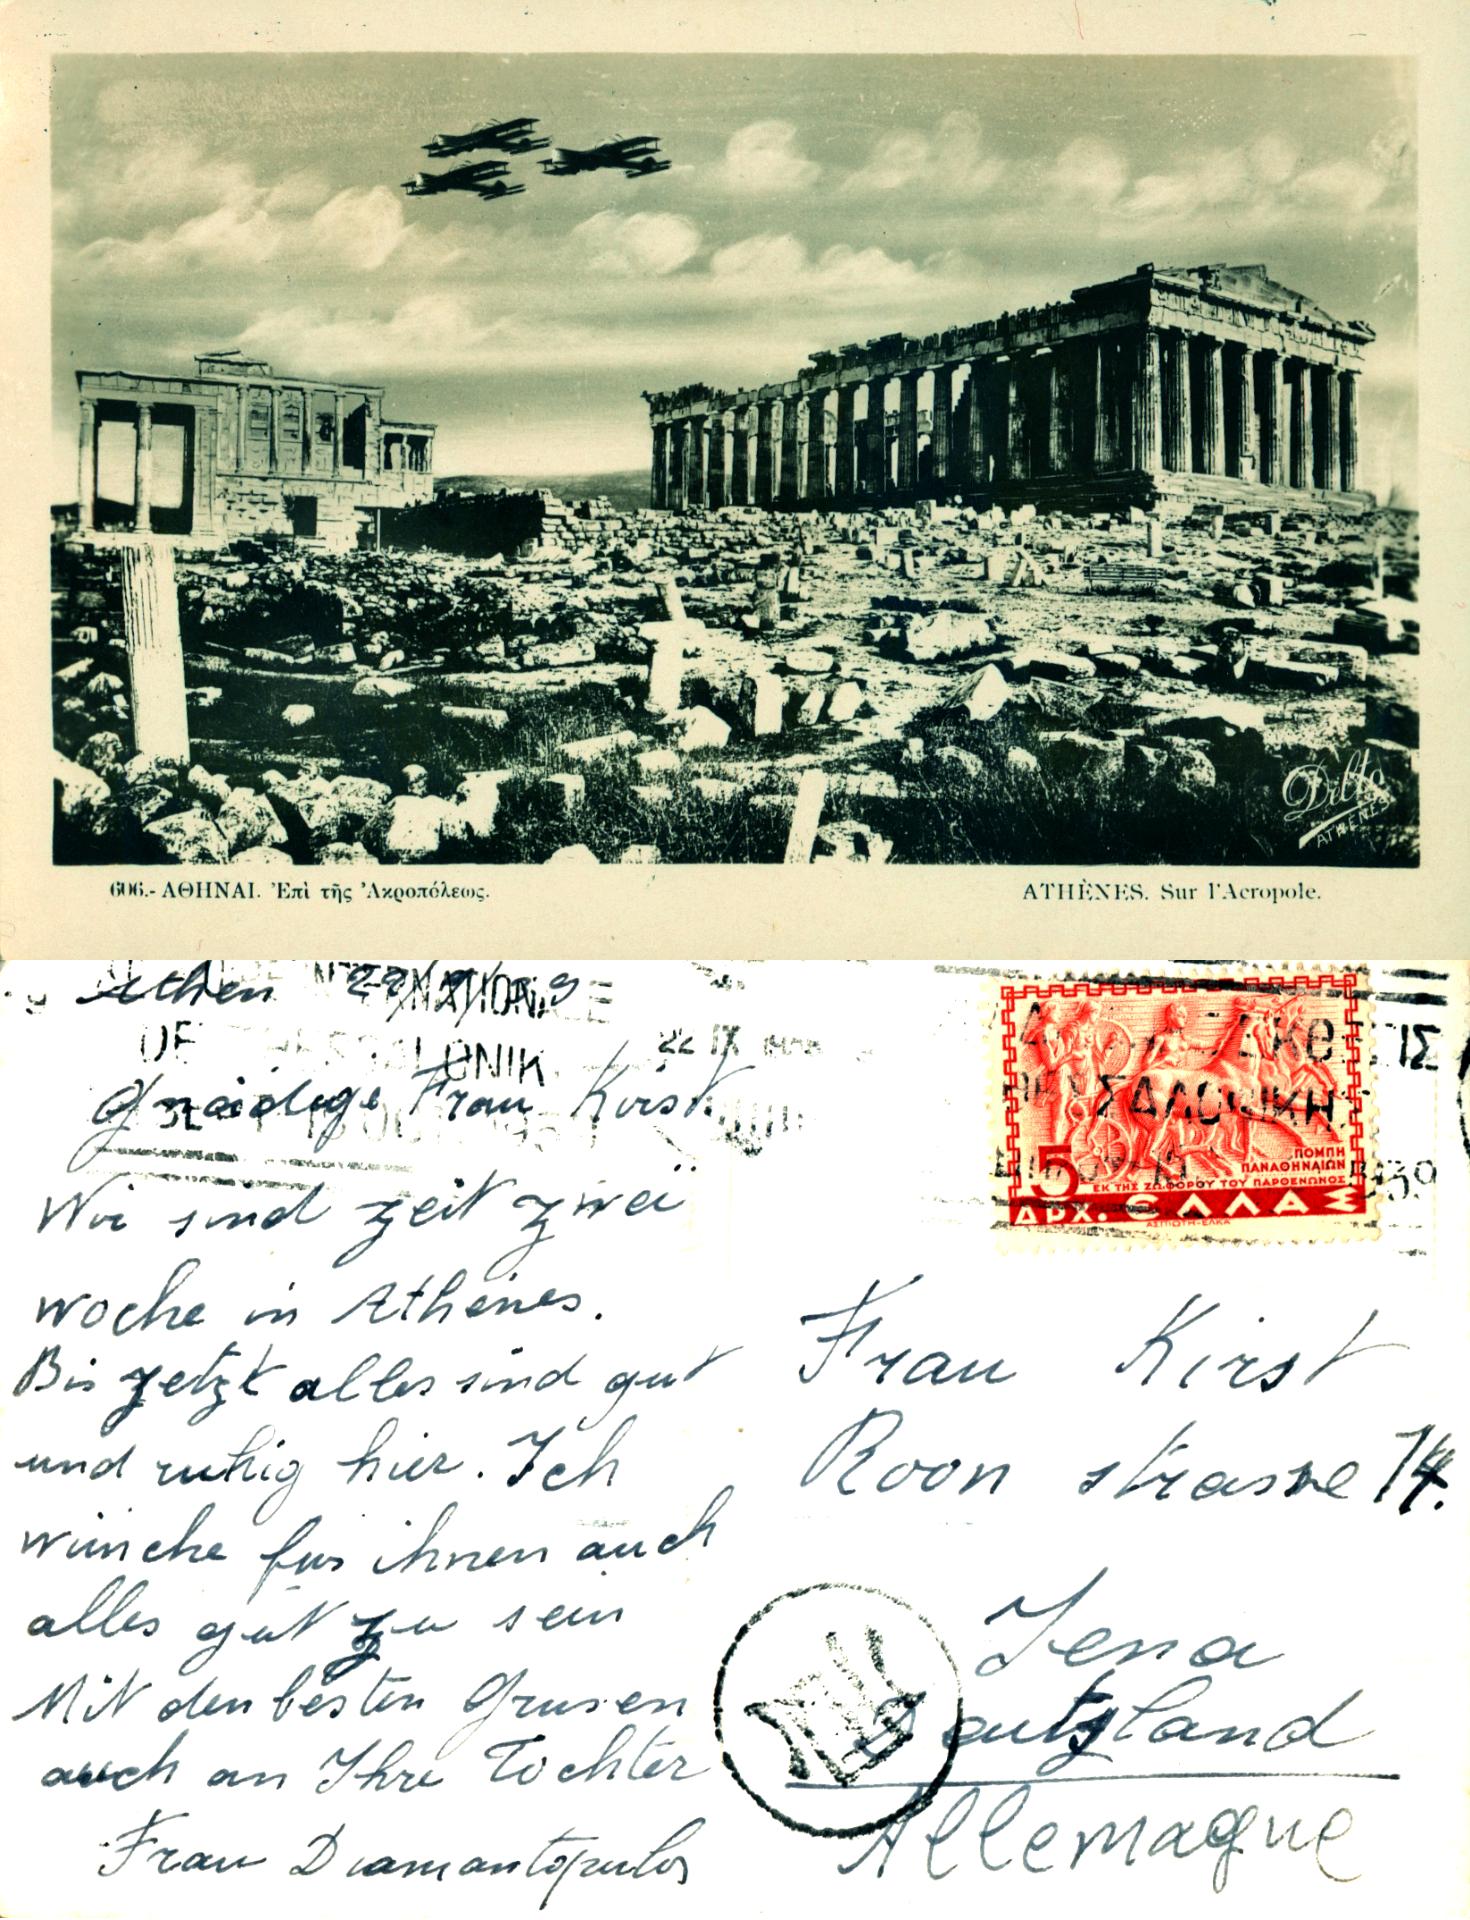 Delta
ATHÈNES
606.- ΑΘΗΝΑΙ. Ἐπὶ τῆς Ἀκροπόλεως.
ATHÈNES. Sur l'Acropole.
Athen 22/9/39
DE THESSALONIK
22 IX
Gnädige Frau Kirst
Wir sind zeit zwei
woche in Athènes.
Bis zetzt alles sind gut
und ruhig hier. Ich
wünche fur ihnen auch
alles gut zu sein
Mit den besten Grusen
auch an Ihre Tochter
Frau Diamantopulos
ΘΕΣΣΑΛΟΝΙΚΗ
5
ΠΟΜΠΗ
ΠΑΝΑΘΗΝΑΙΩΝ
ΕΚ ΤΗΣ ΖΩΦΟΡΟΥ ΤΟΥ ΠΑΡΘΕΝΩΝΟΣ
ΔΡΧ. ΕΛΛΑΣ
ΑΣΠΙΩΤΗ-ΕΛΚΑ
Frau Kirst
Roon strasse 14.
Jena
Deutzland
Allemagne